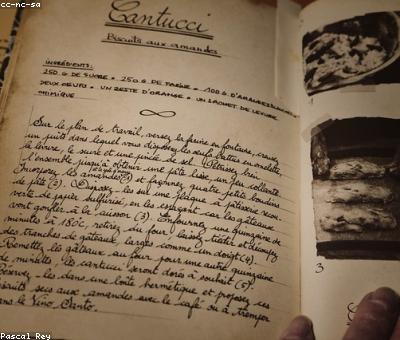 cc-nc-sa
Cantucci
Biscuits aux amandes
INGRÉDIENTS:
250 G DE SUCRE • 250 G DE FARINE • 100 G D'AMANDES
DEUX OEUFS • UN ZESTE D'ORANGE • UN SACHET DE LEVURE
CHIMIQUE
Sur le plan de travail, versez la farine en fontaine, creusez
un puits dans lequel vous disposez les oeufs battus en omelette
la levure, le sucre et une pincée de sel. Pétrissez bien
l'ensemble jusqu'à obtenir une pâte lisse, un peu collante.
Incorporez les amandes (1) et façonnez quatre petits boudins
de pâte (2). Disposez-les sur une plaque à pâtisserie recou-
verte de papier sulfurisé, en les espaçant car les gâteaux
vont gonfler à la cuisson (3). Enfournez une quinzaine de
minutes à 180°C, retirez du four, laissez tiédir et découpez
des tranches de gâteaux, larges comme un doigt (4).
Remettez les gâteaux au four pour une autre quinzaine
de minutes. Les cantucci seront dorés à souhait (5).
Réservez-les dans une boîte hermétique et proposez ces
biscuits secs aux amandes avec le café ou à tremper
dans le Vino Santo.
3
Pascal Rey